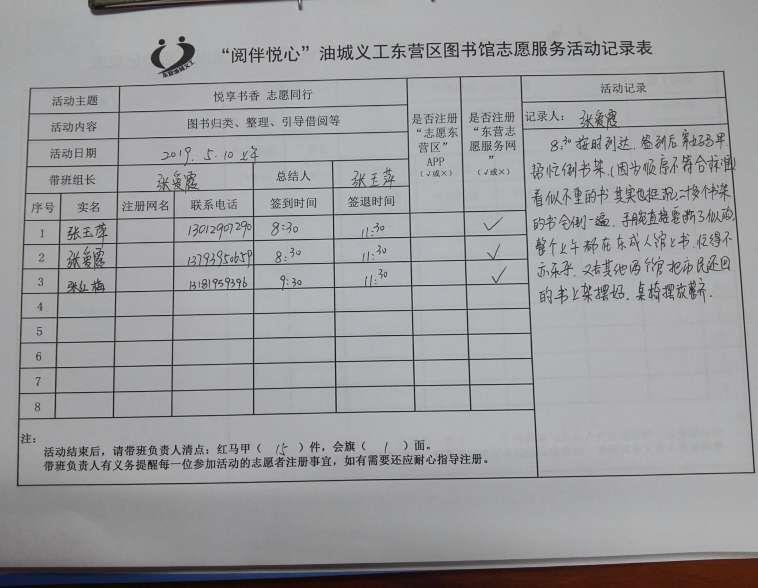 东营油城义工
“阅伴悦心”油城义工东营区图书馆志愿服务活动记录表
活动主题 悦享书香 志愿同行
活动内容 图书归类、整理、引导借阅等
活动日期 2019.5.10 上午
带班组长 张爱霞 总结人 张玉萍
序号 实名 注册网名 联系电话 签到时间 签退时间 是否注册“志愿东营区”APP（√或×） 是否注册“东营志愿服务网”（√或×）
1 张玉萍 13012907290 8:30 11:30 ✓
2 张爱霞 13793950659 8:30 11:30 ✓
3 张红梅 13181959396 9:30 11:30 ✓
4
5
6
7
8
活动记录
记录人： 张爱霞
8:30按时到达，签到后穿好马甲
帮忙倒书架（因为顺序不符合标准）
看似不重的书其实也挺沉，二十多个书架
的书全倒一遍，手腕直接要断了似的，
整个上午都在东成人馆上书，忙得不
亦乐乎。又去其他两个馆把市民还回
的书上架摆好，桌椅摆放整齐。
注：
活动结束后，请带班负责人清点：红马甲（ 15 ）件，会旗（ 1 ）面。
带班负责人有义务提醒每一位参加活动的志愿者注册事宜，如有需要还应耐心指导注册。